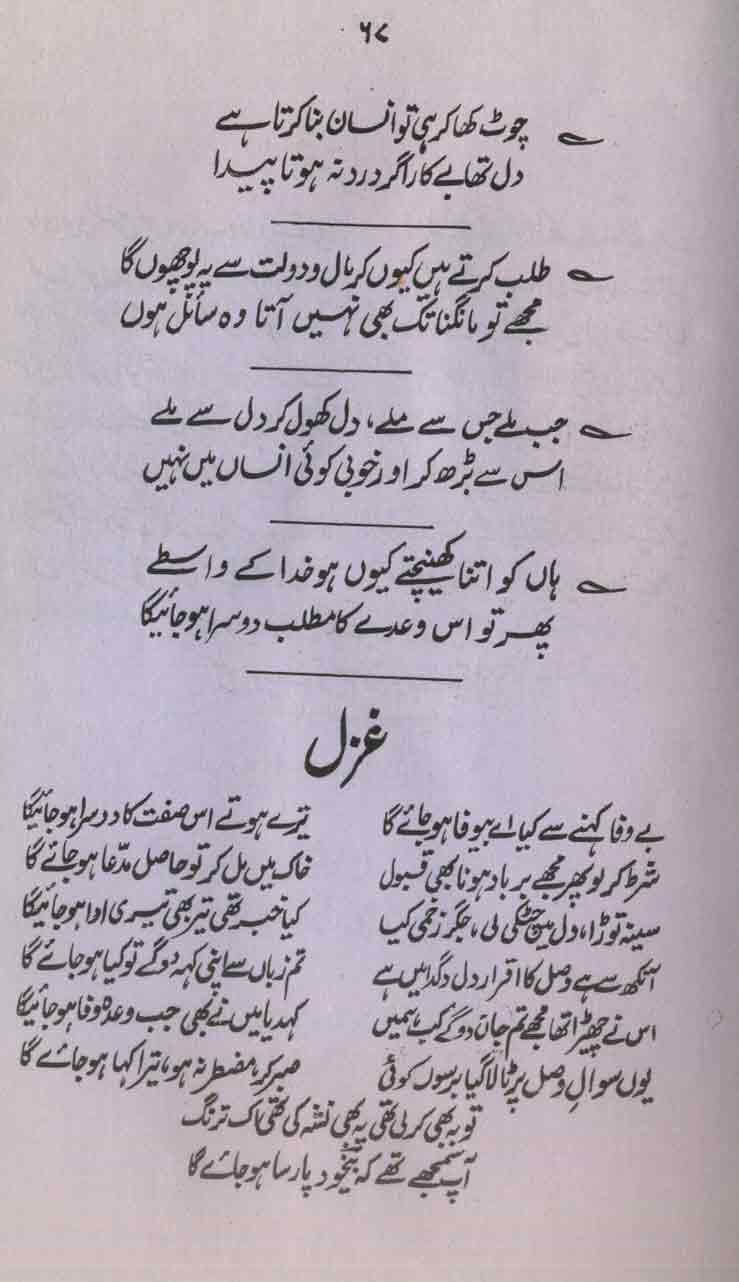 ۶۷
چوٹ کھا کر ہی تو انسان بنا کرتا ہے
دل تھا بے کار اگر درد نہ ہوتا پیدا
طلب کرتے ہیں کیوں کر مال و دولت سے یہ پوچھوں گا
مجھے تو مانگنا تک بھی نہیں آتا وہ سائل ہوں
جب ملے جس سے ملے، دل کھول کر دل سے ملے
اس سے بڑھ کر اور خوبی کوئی انساں میں نہیں
ہاں کو اتنا کھینچتے کیوں ہو خدا کے واسطے
پھر تو اس وعدے کا مطلب دوسرا ہو جائیگا
غزل
بے وفا کہنے سے کیا اے بیوفا ہو جائے گا تیرے ہوتے اس صفت کا دوسرا ہو جائیگا
شرط کر لو پھر مجھے برباد ہونا بھی قبول خاک میں مل کر تو حاصل مدّعا ہو جائے گا
سینہ توڑا، دل میں چٹکی لی، جگر زخمی کیا کیا خبر تھی تیر بھی تیری ادا ہو جائیگا
آنکھ سے ہے وصل کا اقرار دل دگدا میں ہے تم زباں سے اپنی کہہ دو گے تو کیا ہو جائے گا
اس نے چھیڑا تھا مجھے تم جان دو گے کب ہمیں کہدیا میں نے بھی جب وعدہ وفا ہو جائیگا
یوں سوالِ وصل پر ٹالا گیا برسوں کوئی صبر کر، مضطر نہ ہو، تیرا کہا ہو جائے گا
توبہ بھی کر لی تھی یہ بھی نشہ کی تھی اک ترنگ
آپ سمجھے تھے کہ بیخود پارسا ہو جائے گا